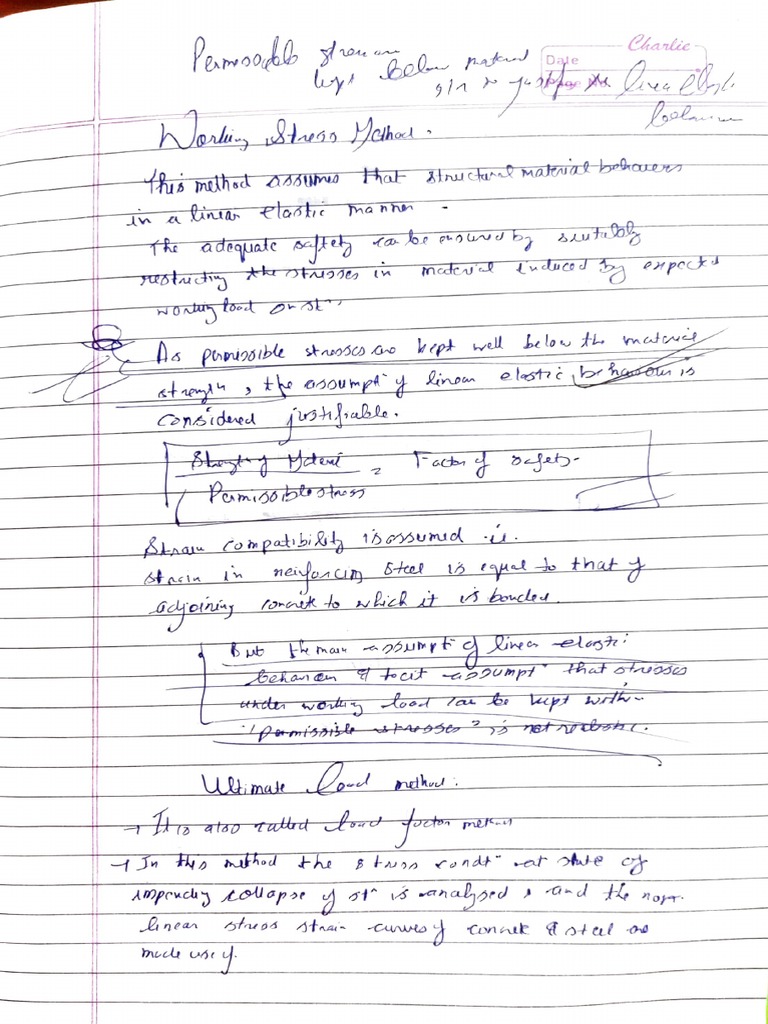 Charlie
Date
Permissible stresses
kept below material
to justify the linear elastic
behaviour
Working Stress Method.
This method assumes that structural material behaves
in a linear elastic manner.
The adequate safety can be ensured by suitably
restricting the stresses in material induced by expected
working load on stⁿ.
As permissible stresses are kept well below the material
strength, the assumptⁿ of linear elastic behaviour is
considered justifiable.
Strength of Material = Factor of safety.
Permissible stress
Strain compatibility is assumed i.e.
strain in reinforcing steel is equal to that of
adjoining concrete to which it is bonded.
But the main assumptⁿ of linear elastic
behaviour & tacit assumptⁿ that stresses
under working load can be kept within
"permissible stresses" is not realistic.
Ultimate load method.
→ It is also called load factor method
→ In this method the stress condtⁿ at state of
impending collapse of stⁿ is analysed, and the non-
linear stress strain curves of concrete & steel are
made use of.